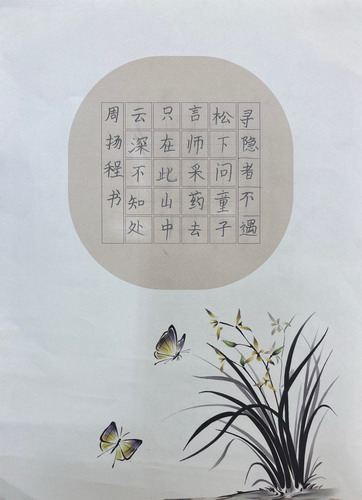 寻隐者不遇
松下问童子
言师采药去
只在此山中
云深不知处
周扬程书